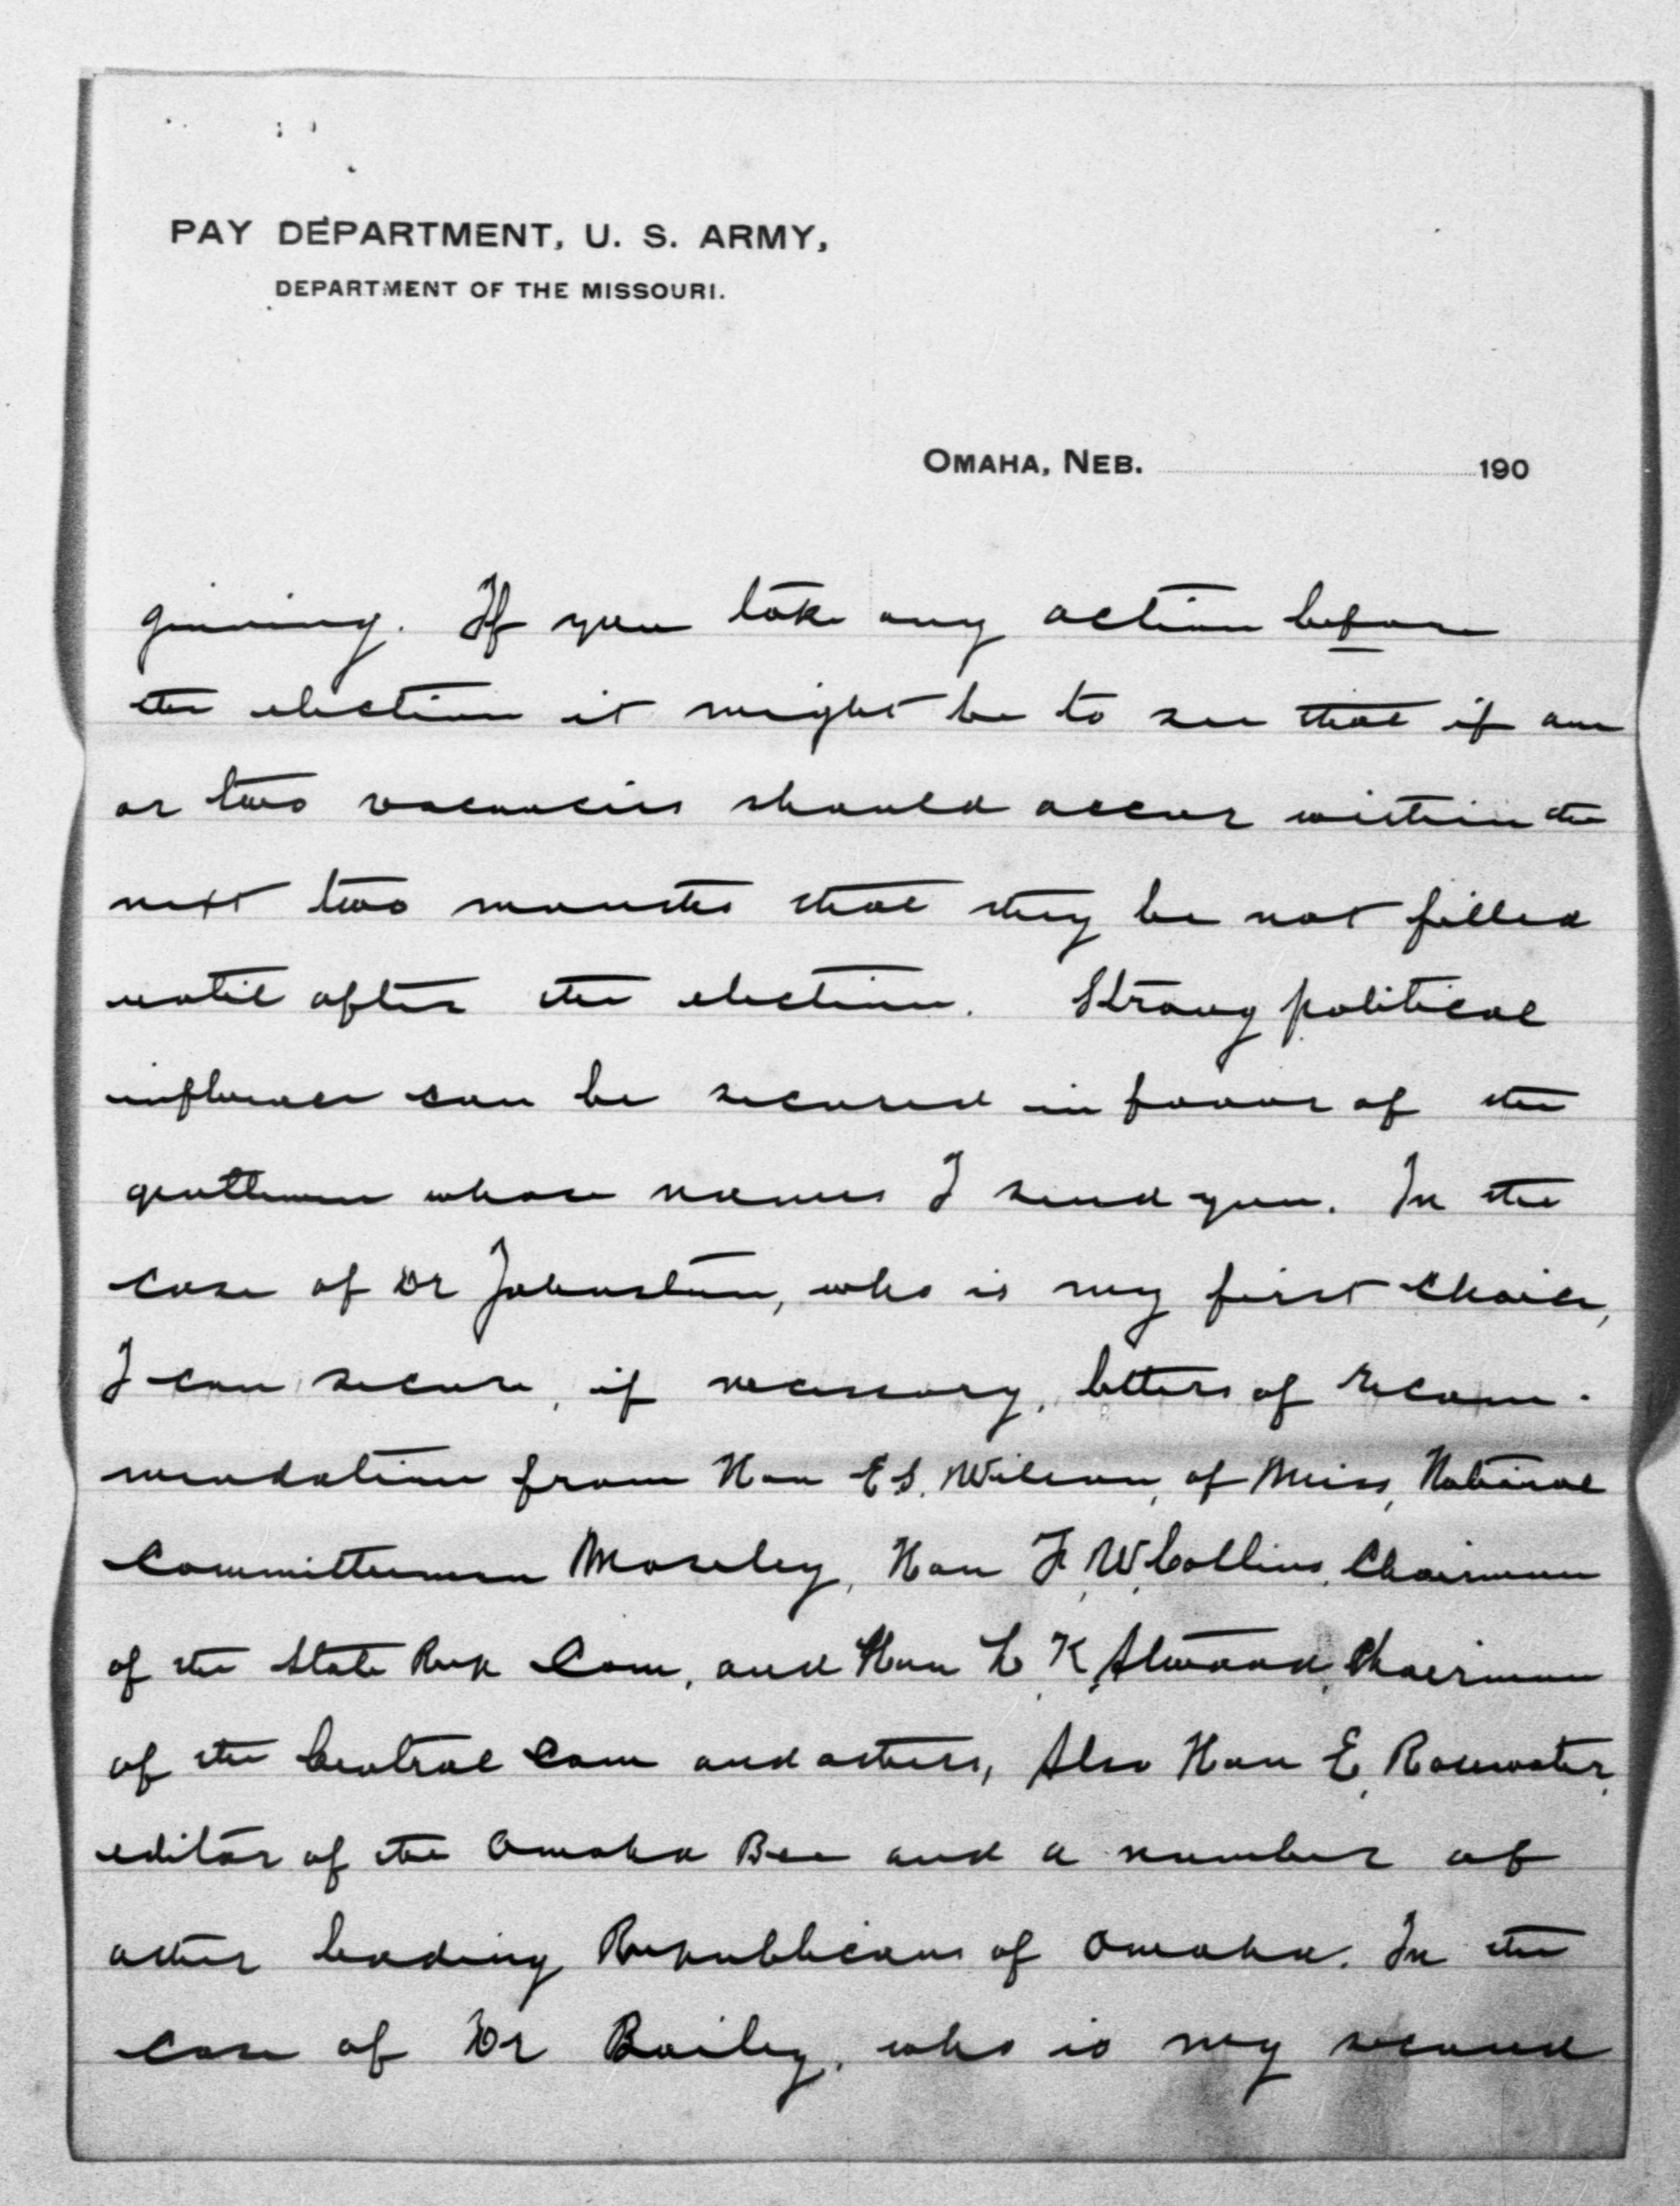 PAY DEPARTMENT, U. S. ARMY,
DEPARTMENT OF THE MISSOURI.
OMAHA, NEB. 190
ginning. If you take any action before
the election it might be to see that if one
or two vacancies should occur within the
next two months that they be not filled
until after the election. Strong political
influence can be secured in favor of the
gentlemen whose names I send you. In the
case of Dr Johnston, who is my first choice,
I can secure, if necessary, letters of recom-
mendation from Hon E S. Wilson, of Miss, National
Committeeman Moseley, Hon F. W. Collins, Chairman
of the State Rep Com, and Hon L. K. Atwood, Chairman
of the Central Com and others, Also Hon E. Rosewater,
editor of the Omaha Bee and a number of
other leading Republicans of Omaha. In the
case of Dr Bailey, who is my second